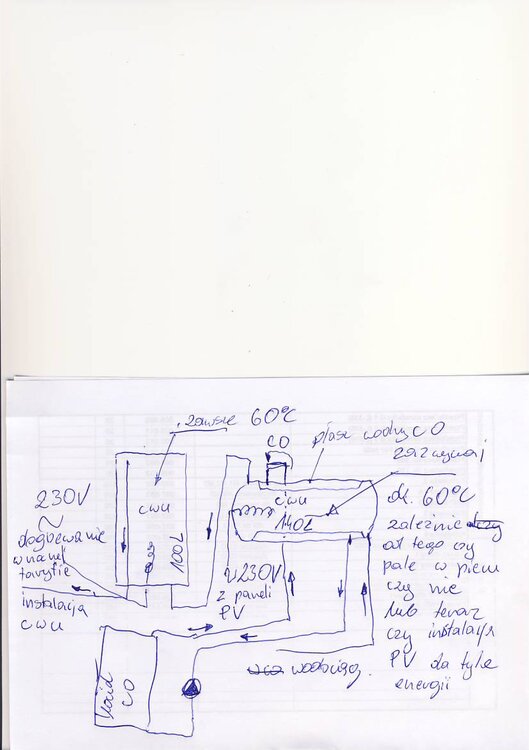 zawsze 60°C
CO
płaszcz wodny CO
zazwyczaj
ok. 60°C
zależnie
od tego czy
palę w piecu
czy nie
lub teraz
czy instalacja
PV da tyle
energii
230V
~
dogrzewanie
w taniej
taryfie
instalacja
cwu
cwu
100L
cwu
140L
~230V
z paneli
PV
wodociąg.
CO